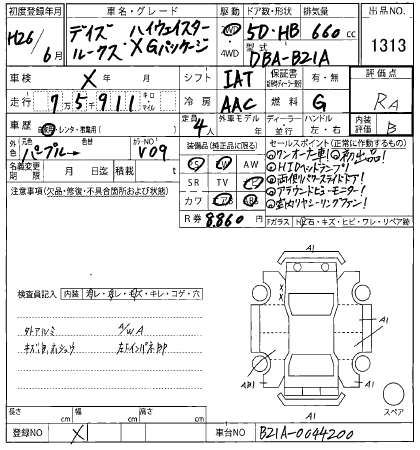 初度登録年月 車名・グレード 駆動 ドア数・形状 排気量 出品NO.
H26/6月 デイズ ハイウェイスター 2WD 5D・HB 660cc 1313
ルークス・X Gパッケージ 4WD 型式 DBA-B21A
車検 X年 月 シフト IAT 保証書 有・無 評価点
走行 75911 キロ・マイル 冷房 AAC 燃料 G RA
車歴 自家用・レンタ・教習用( ) 定員 4人 外車モデル 年 ディーラー・並行 ハンドル 左・右 内装評価 B
外色 元色 パープル 色替 → カラーNO V09 装備品(純正品に限る) セールスポイント(正常に作動するもの)
PS PW AW ◎ワンオーナー車! ◎初出品!
名義変更期限 月 日迄 積載 t SR TV ナビ ◎HIDヘッドランプ!
注意事項(欠品・修復・不具合箇所および状態) カワ エアB ABS ◎両側パワースライドドア!
◎アラウンドビューモニター!
R券 8,860円
Fガラス 飛石・キズ・ヒビ・ワレ・リペア跡
検査員記入 内装 汚レ・スレ・キズ・キレ・コゲ・穴
外アルミ A/W A
A1
A1
AB1
A1
A1
スペア
長さ cm 幅 cm 高さ cm
登録NO X 車台NO B21A-0044200